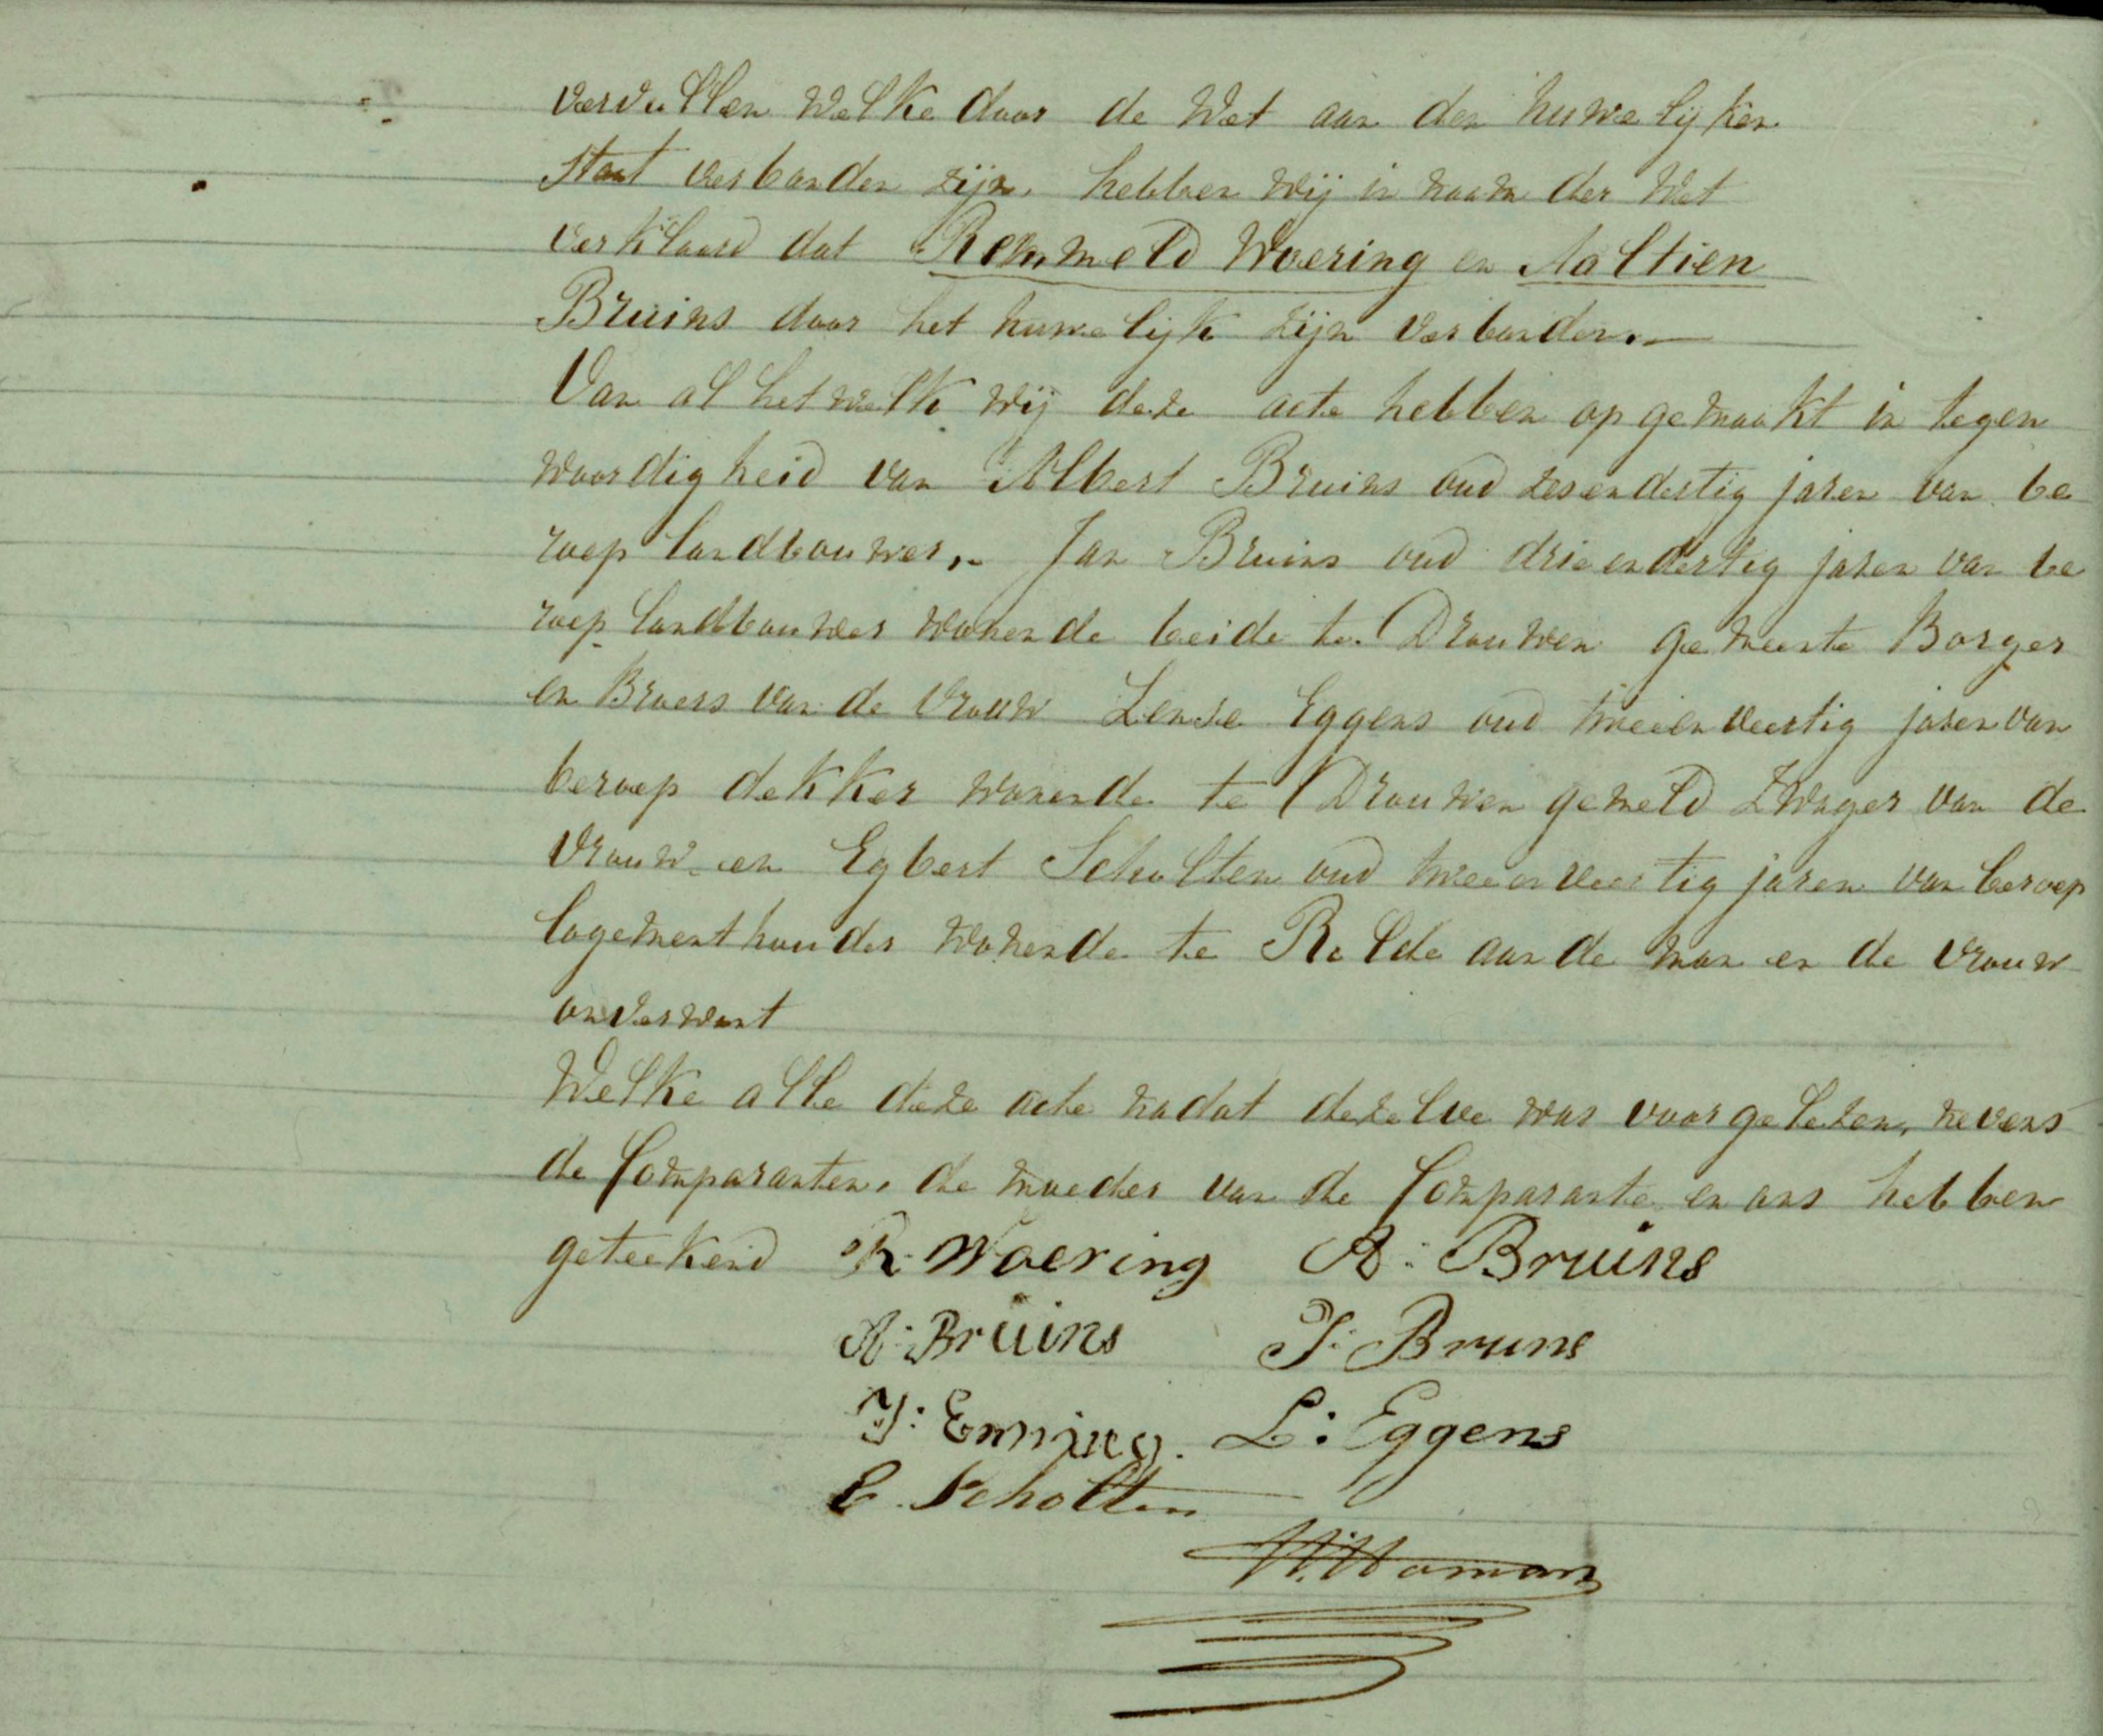 vervullen welke door de wet aan den huwelijken
staat verbonden zijn, hebben wij in naam der wet
verklaard dat Remmeld Woering en Aaltien
Bruins door het huwelijk zijn verbonden.
Van al hetwelk wij deze acte hebben opgemaakt in tegen
woordigheid van Albert Bruins oud zesendertig jaren van be
roep landbouwer, Jan Bruins oud drieendertig jaren van be
roep landbouwer wonende beide te Drouwen gemeente Borger
en Broers van de vrouw Lense Eggens oud tweeenveertig jaren van
beroep dekker wonende te Drouwen gemeld Zwager van de
vrouw en Egbert Scholten oud tweeenveertig jaren van beroep
logementhouder wonende te Rolde aan de man en de vrouw
onverwant
Welke alle deze acte nadat dezelve was voorgelezen, nevens
de Comparanten, de moeder van de Comparante en ons hebben
geteekend R. Woering A: Bruins
A: Bruins J: Bruns
J: Enning. L: Eggens
E. Scholten
Homan